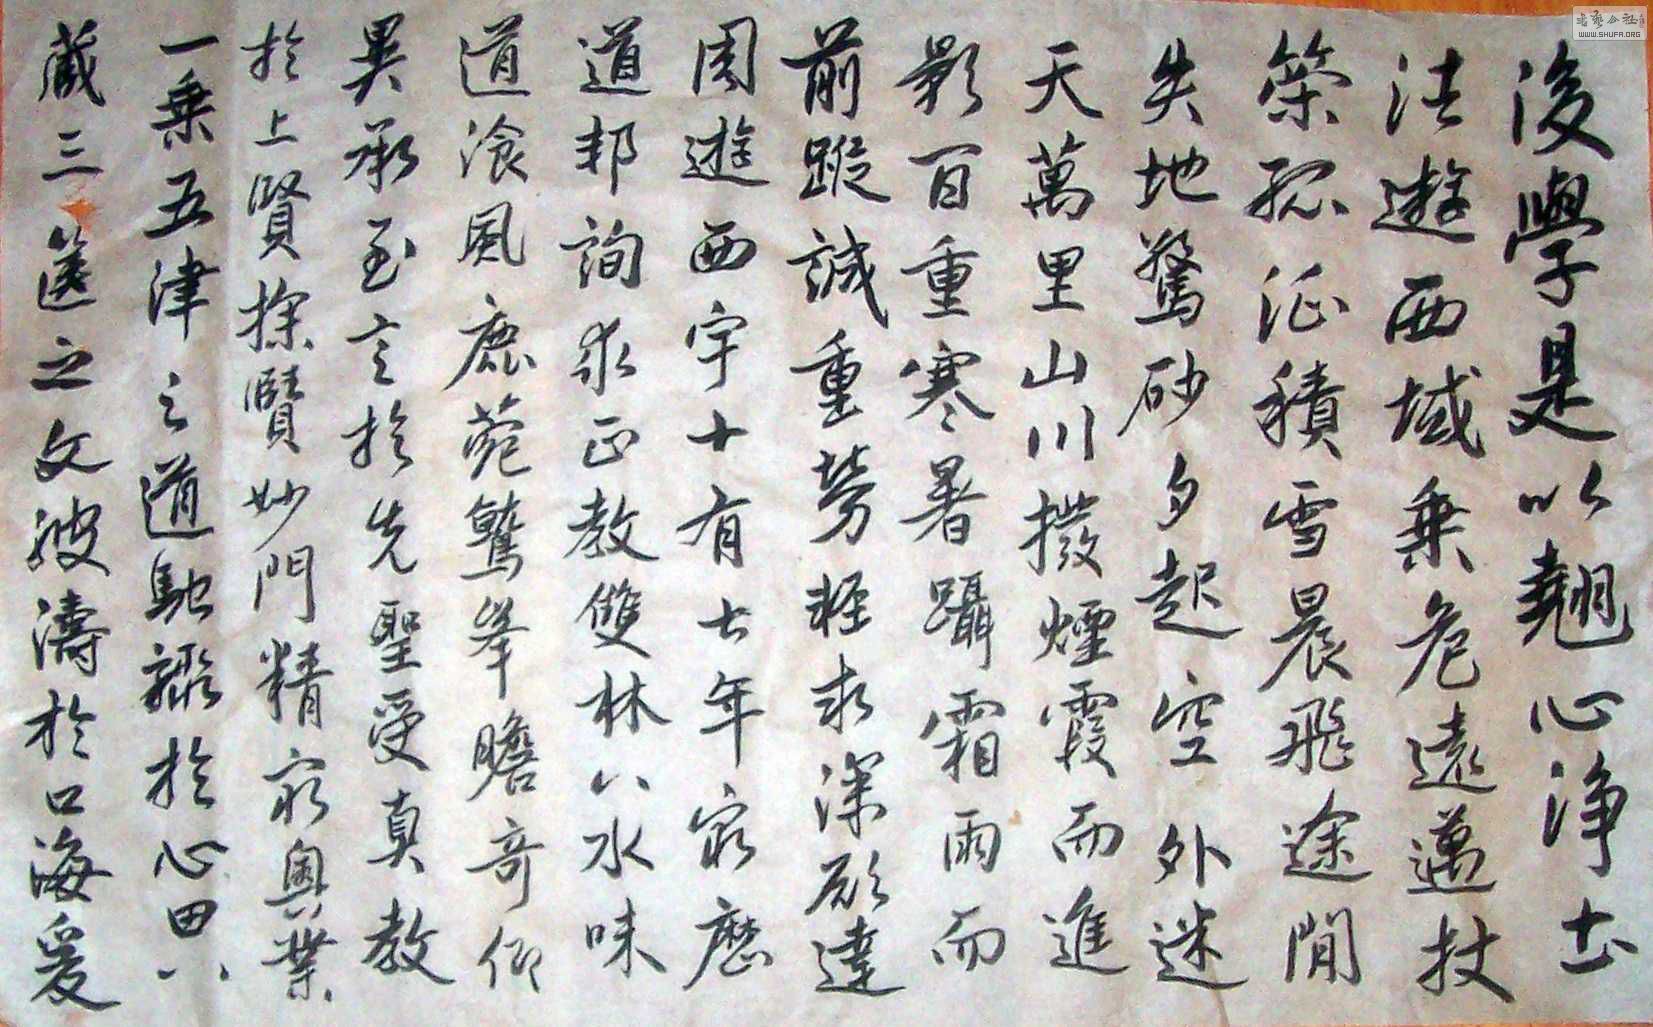 後學是以翹心淨土
法遊西域乘危遠邁杖
策孤征積雪晨飛途間
失地驚砂夕起空外迷
天萬里山川撥煙霞而進
影百重寒暑躡霜雨而
前蹤誠重勞輕求深願達
周遊西宇十有七年窮歷
道邦詢求正教雙林八水味
道飡風鹿菀鷲峯瞻奇仰
異承至言於先聖受真教
於上賢探賾妙門精窮奧業
一乘五津之道馳驟於心田八
藏三篋之文波濤於口海爰
書藝公社
WWW.SHUFA.ORG